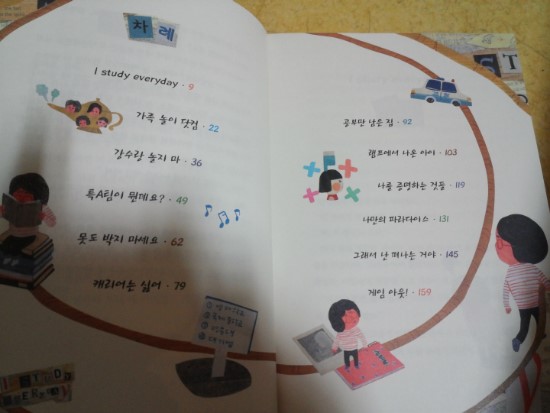 차례
I study everyday · 9
가족 놀이 닷컴 · 22
강수랑 놀지 마 · 36
특A팀이 뭔데요? · 49
못도 박지 마세요 · 62
캐리어는 싫어 · 79
공부만 남은 집 · 92
램프에서 나온 아이 · 103
나를 증명하는 것들 · 119
나만의 파라다이스 · 131
그래서 난 떠나는 거야 · 145
게임 아웃! · 159
I STUDY